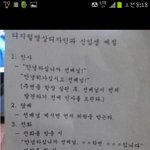 8:18
디지털영상디자인과 신입생 예절
1. 인사
- "안녕하십니까 선배님!"
"안녕히가십시오 선배님!"
(주변을 항상 살핀 후, 선배님이 먼저
발견하기 전에 인사를 드린다.)
2. 담배
- 선배님 에게 먼저 허락을 받는다.
3. 전화
- 전화를 받을 시
"안녕하십니까 선배님. ××학번 ○○○입니다"